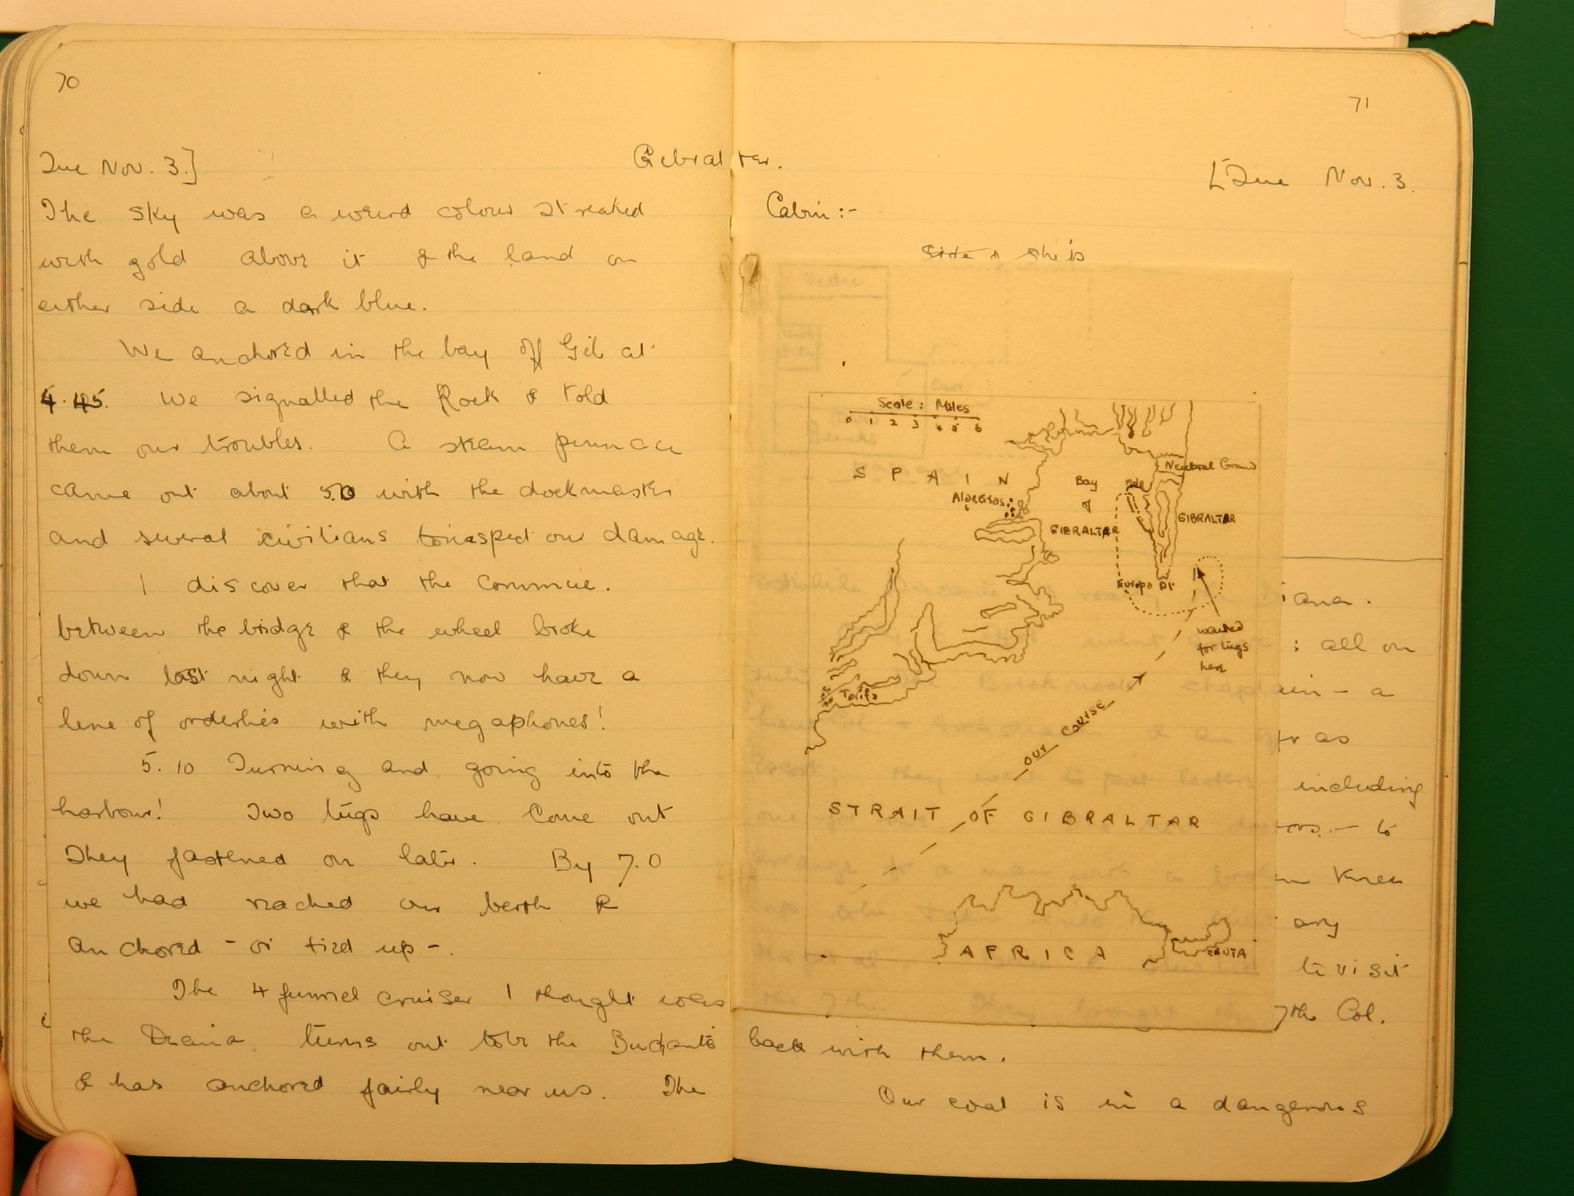 70
Tue Nov. 3.]
Gibralter.
The sky was a weird colour streaked
with gold above it & the land on
either side a dark blue.
We anchored in the bay off Gib at
4.45. We signalled the Rock & told
them our troubles. A steam pinnace
came out about 5.0 with the dockmaster
and several civilians to inspect our damage.
I discover that the commue.
between the bridge & the wheel broke
down last night & they now have a
line of orderlies with megaphones!
5.10 Turning and going into the
harbour! Two tugs have come out
They fastened on later. By 7.0
we had reached our berth &
anchored - or tied up -.
The 4 funnel cruiser I thought was
the Diana turns out to be the
& has anchored fairly near us. The
71
[Tue Nov. 3.
Cabin:-
ship's
Scale: Miles
0 1 2 3 4 5 6
SPAIN
Algeciras
Bay
of
GIBRALTAR
Mole
Neutral Ground
GIBRALTAR
Europa Pt.
waited
for tugs
here
Tarifa
our course
STRAIT OF GIBRALTAR
AFRICA
CEUTA
iana.
: all on
ain - a
as
including
- to
knee
ary
to visit
7th Col.
back with them.
Our coal is in a dangerous